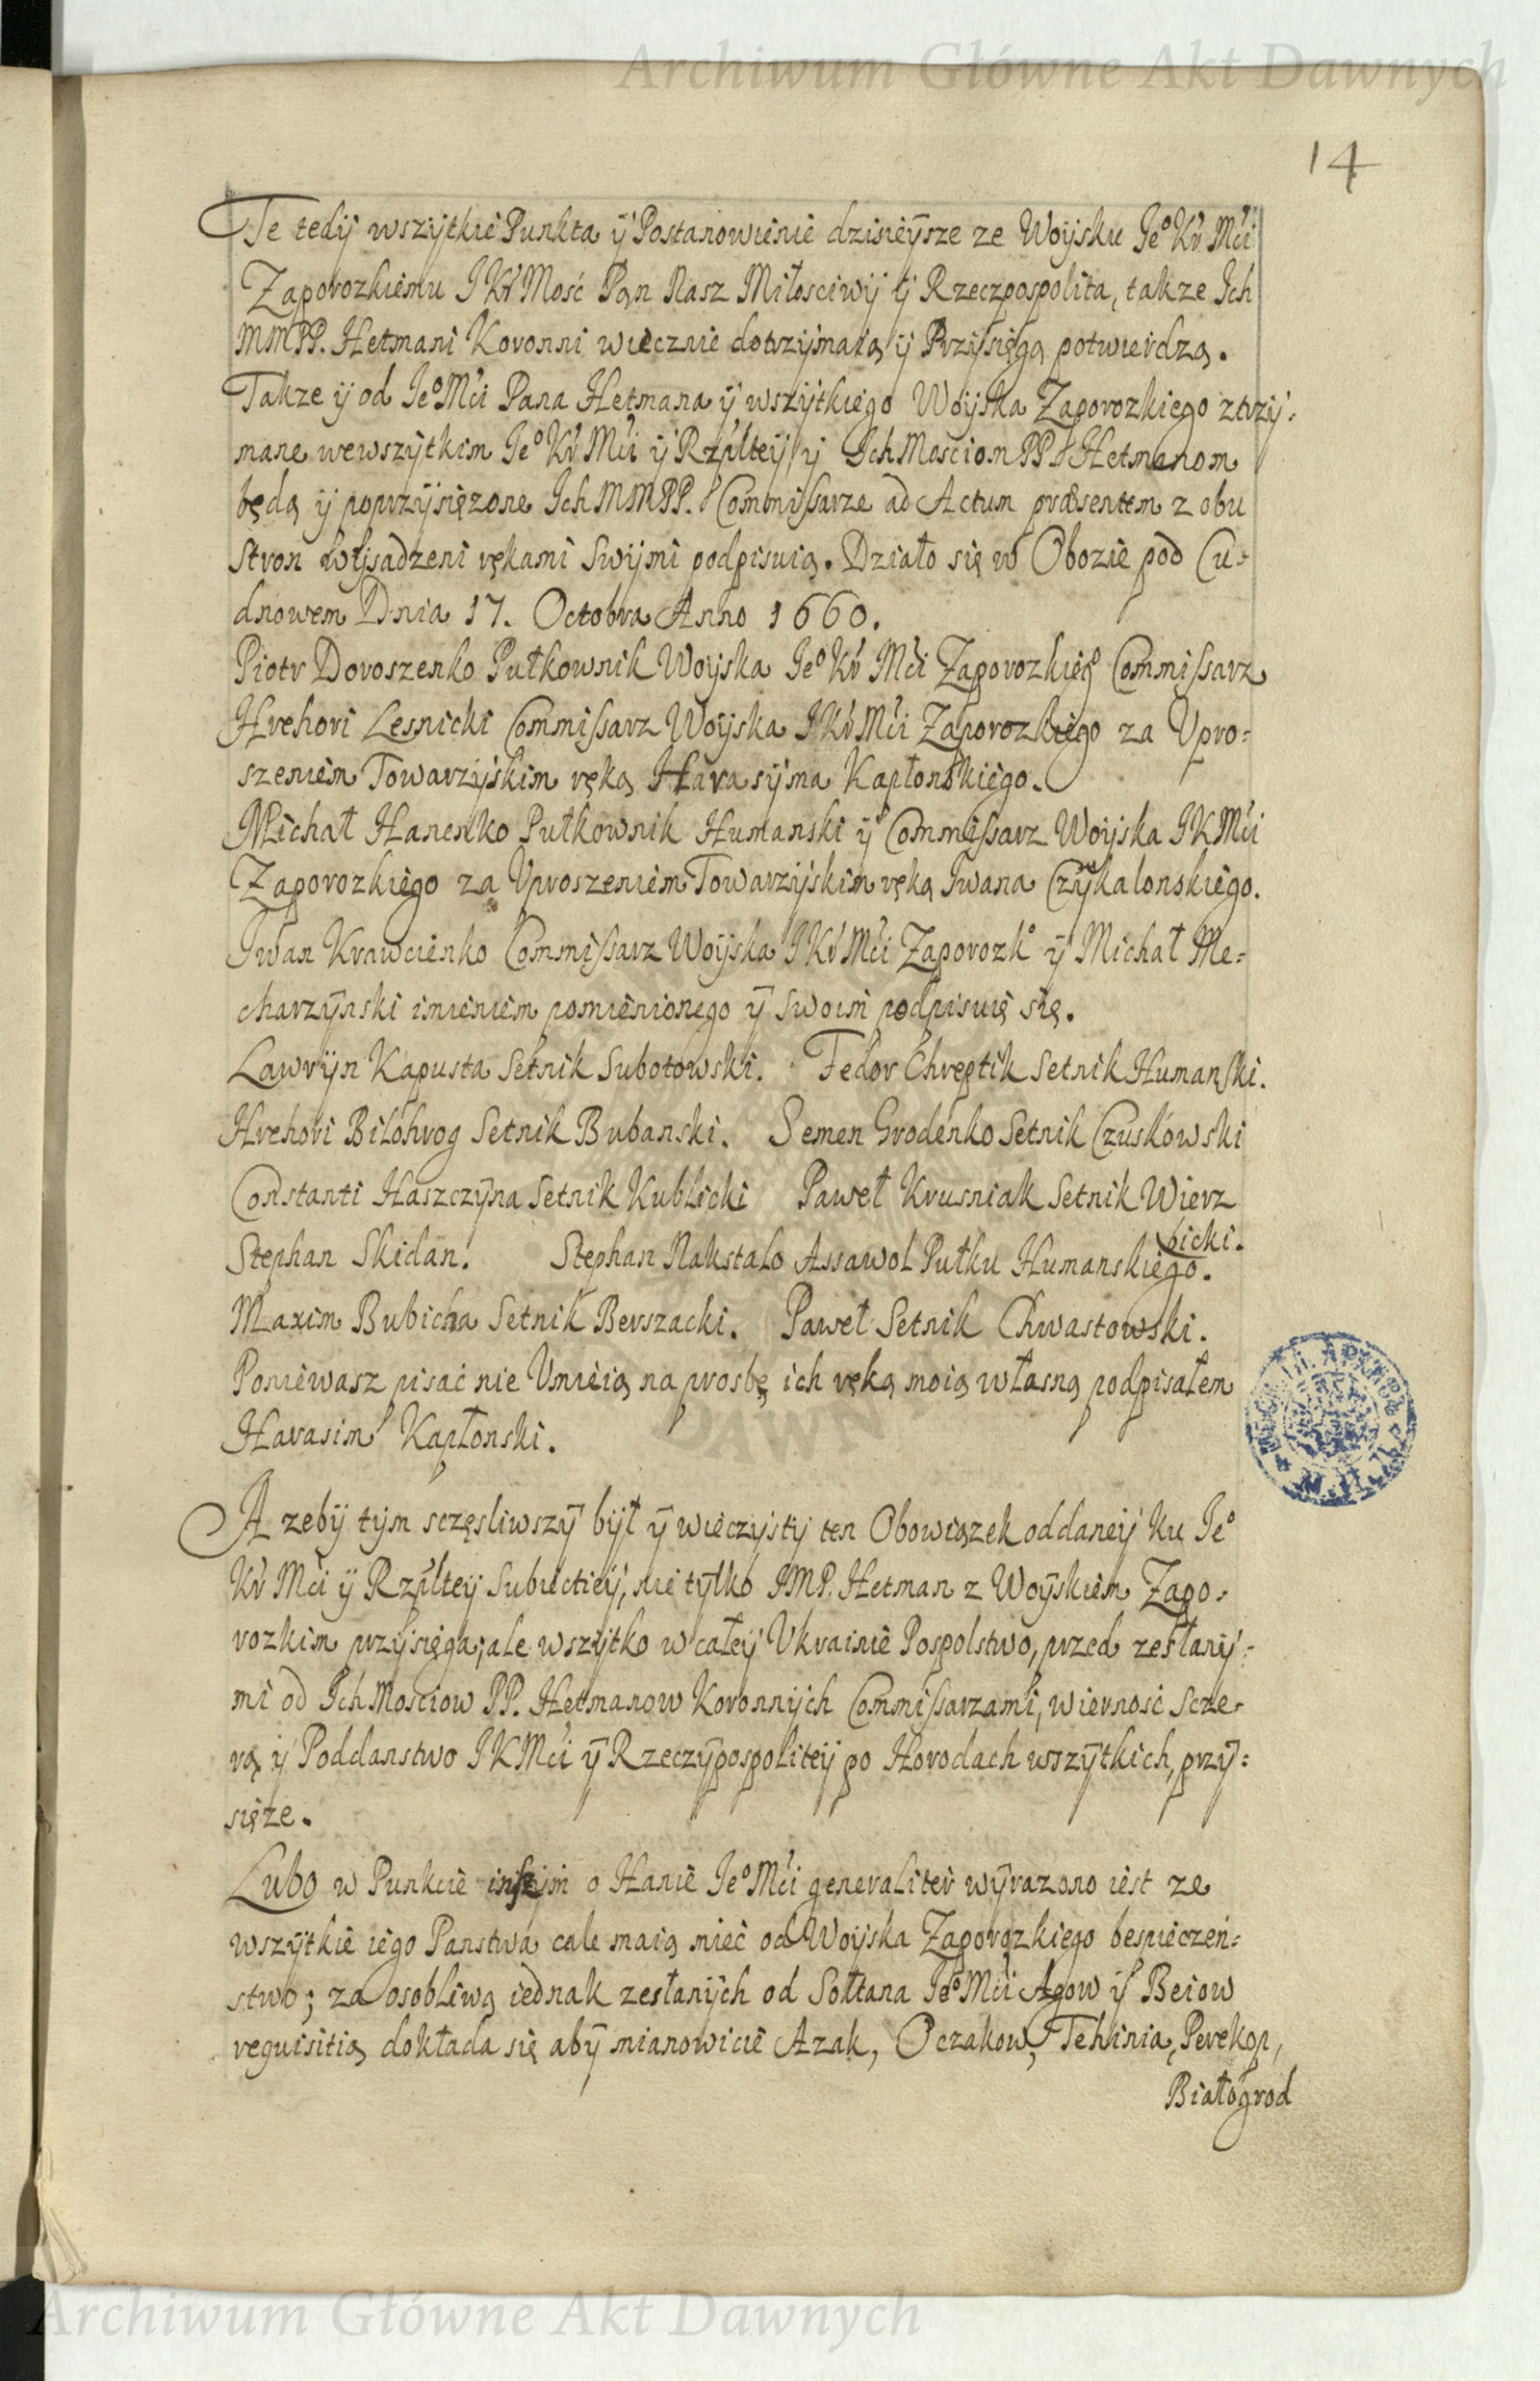 Archiwum Główne Akt Dawnych
14
Te tedÿ wszÿtkie Punkta ÿ Postanowienie dzisieÿsze ze Woÿsku Je° Kr Mći
Zaporozkiemu J Kr Mość Pan Nasz Miłosciwÿ ÿ Rzeczpospolita, takze Ich
MMPP. Hetmani Koronni wiecznie dotrzÿmaią ÿ Przÿsięgą potwierdzą.
Takze ÿ od Je° Mći Pana Hetmana ÿ wszÿtkiego Woÿska Zaporozkiego ztrzÿ:
mane wewszÿtkim Je° Kr Mći ÿ Rzpltey ÿ Ich Mosciom PP Hetmanom
będą ÿ poprzÿsięzone Ich MMPP. Commissarze ad Actum præsentem z obu
Stron wÿsadzeni rękami Swÿmi podpisuią. Działo się w Obozie pod Cu-
dnowem Dnia 17. Octobra Anno 1660.
Piotr Doroszenko Pułkownik Woÿska Je° Kr Mći Zaporozkieg° Commissarz
Hrehori Lesnicki Commissarz Woÿska J Kr Mći Zaporozkiego za Upro:
szeniem Towarzÿskim ręką Harasÿma Kapłonskiego.
Michał Hanenko Pułkownik Humanski ÿ Commissarz Woÿska J K Mći
Zaporozkiego za Uproszeniem Towarzÿskim ręką Iwana Czÿkalonskiego.
Iwan Krawcienko Commissarz Woÿska J Kr Mći Zaporozk° ÿ Michał Me:
charzÿnski imieniem pomienionego ÿ Swoim podpisuię się.
Lawrÿn Kapusta Setnik Subotowski. Fedor Chreptik Setnik Humanski.
Hrehori Bilohrog Setnik Bubanski. Semen Grodenko Setnik Czuskowski
Constanti Haszczÿna Setnik Kublicki Paweł Krusniak Setnik Wierz
bicki.
Stephan Skidan. Stephan Nakstalo Assawol Pułku Humanskiego.
Maxim Bubicha Setnik Berszacki. Paweł Setnik Chwastowski.
Poniewasz pisać nie Umieią na prosbę ich ręką moią własną podpisałem
Harasim Kapłonski.
A zebÿ tÿm sczęsliwszÿ bÿł ÿ wieczÿstÿ ten Obowiązek oddaneÿ ku Je°
Kr Mći ÿ Rzplteÿ Subiectieÿ, nie tÿlko JMP. Hetman z Woÿskiem Zapo-
rozkim przÿsięga; ale wszÿtko w całeÿ Ukrainie Pospolstwo, przed zesłanÿ:
mi od Ich Mosciow PP. Hetmanow Koronnÿch Commissarzami, wiernosc scze-
rą ÿ Poddanstwo J K Mći ÿ Rzeczÿpospoliteÿ po Horodach wszÿtkich, przÿ:
sięze.
Lubo w Punkcie inszÿm o Hanie Je° Mći generaliter wÿrazono iest ze
wszÿtkie iego Panstwa cale maią mieć od Woÿska Zaporozkiego bespieczeń:
stwo; za osobliwą iednak zesłanÿch od Sołtana Je° Mći Agow ÿ Beiow
requisitią dokłada się abÿ mianowicie Azak, Oczakow, Tehinia, Perekop,
Białogrod
Archiwum Główne Akt Dawnych